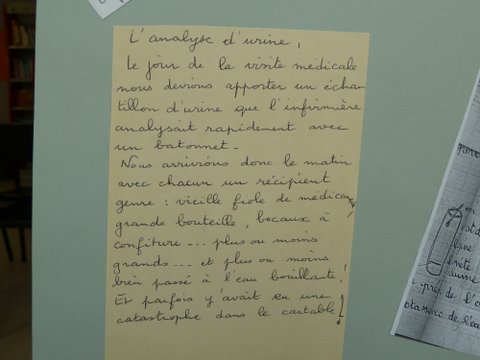 L'analyse d'urine,
Le jour de la visite médicale
nous devions apporter un échan
tillon d'urine que l'infirmière
analysait rapidement avec
un batonnet.
Nous arrivions donc le matin
avec chacun un récipient
genre : vieille fiole de médicament,
grande bouteille, bocaux à
confiture... plus ou moins
grands... et plus ou moins
bien passé à l'eau bouillante !
Et parfois y'avait eu une
catastrophe dans le cartable !